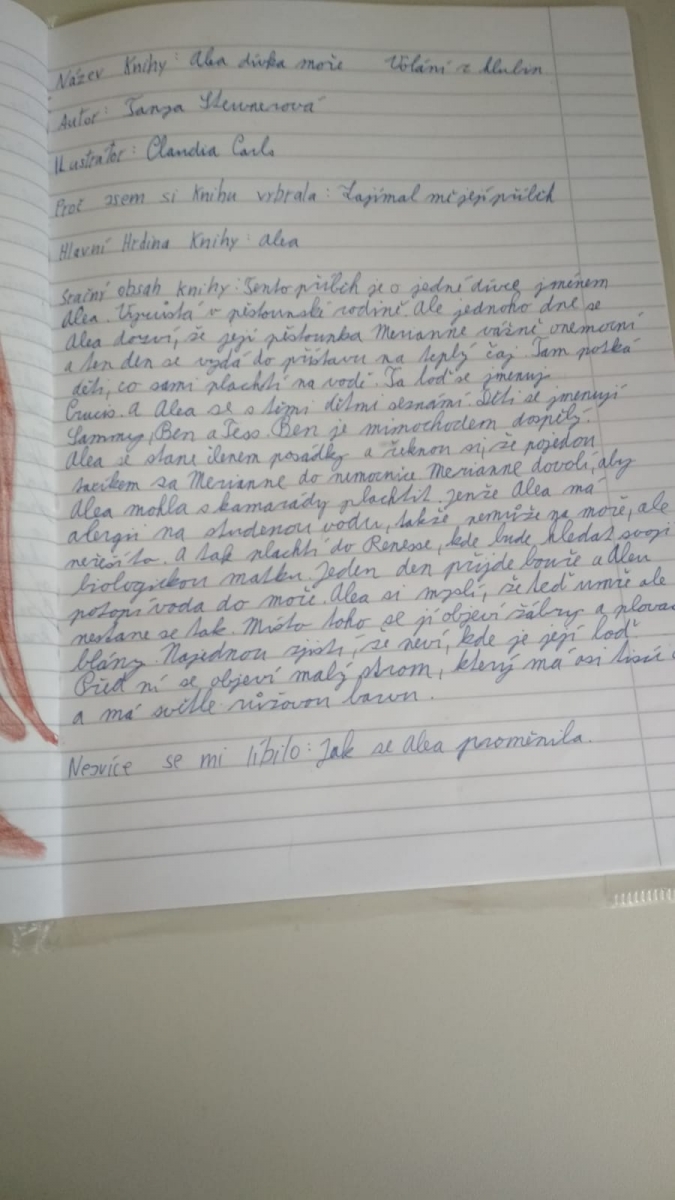 Název Knihy: Alea dívka moře Volání z hlubin
Autor: Tanya Stewnerová
Ilustrátor: Claudia Carls
Proč jsem si Knihu vybrala: Zajímal mě její příběh
Hlavní Hrdina Knihy: Alea
Stručný obsah knihy: Tento příběh je o jedné dívce jménem
Alea. Vyrůstá v pěstounské rodině. Ale jednoho dne se
Alea dozví, že její pěstounka Merianne vážně onemocní
a ten den se vydá do přístavu na teplý čaj. Tam potká
děti, co sami plachtí na vodě. Ta loď se jmenuj
Crucis. A Alea se s těmi dětmi seznámí. Děti se jmenují
Sammy, Ben a Tess. Ben je mimochodem dospělý.
Alea se stane členem posádky a řeknou si, že pojedou
taxíkem za Merianne do nemocnice. Merianne dovolí, aby
Alea mohla s kamarády plachtit. Jenže Alea má
alergii na studenou vodu, takže nemůže na moře, ale
neřeší to. A tak plachtí do Renesse, kde bude hledat svoji
biologickou matku. Jeden den přijde bouře a Aleu
potopí voda do moře. Alea si myslí, že teď umře ale
nestane se tak. Místo toho se jí objeví žábry a plovac
blány. Najednou zjistí, že neví, kde je její loď.
Před ní se objeví malý strom, který má asi tisíc
a má světle růžovou barvu.
Nejvíce se mi líbilo: Jak se Alea proměnila.